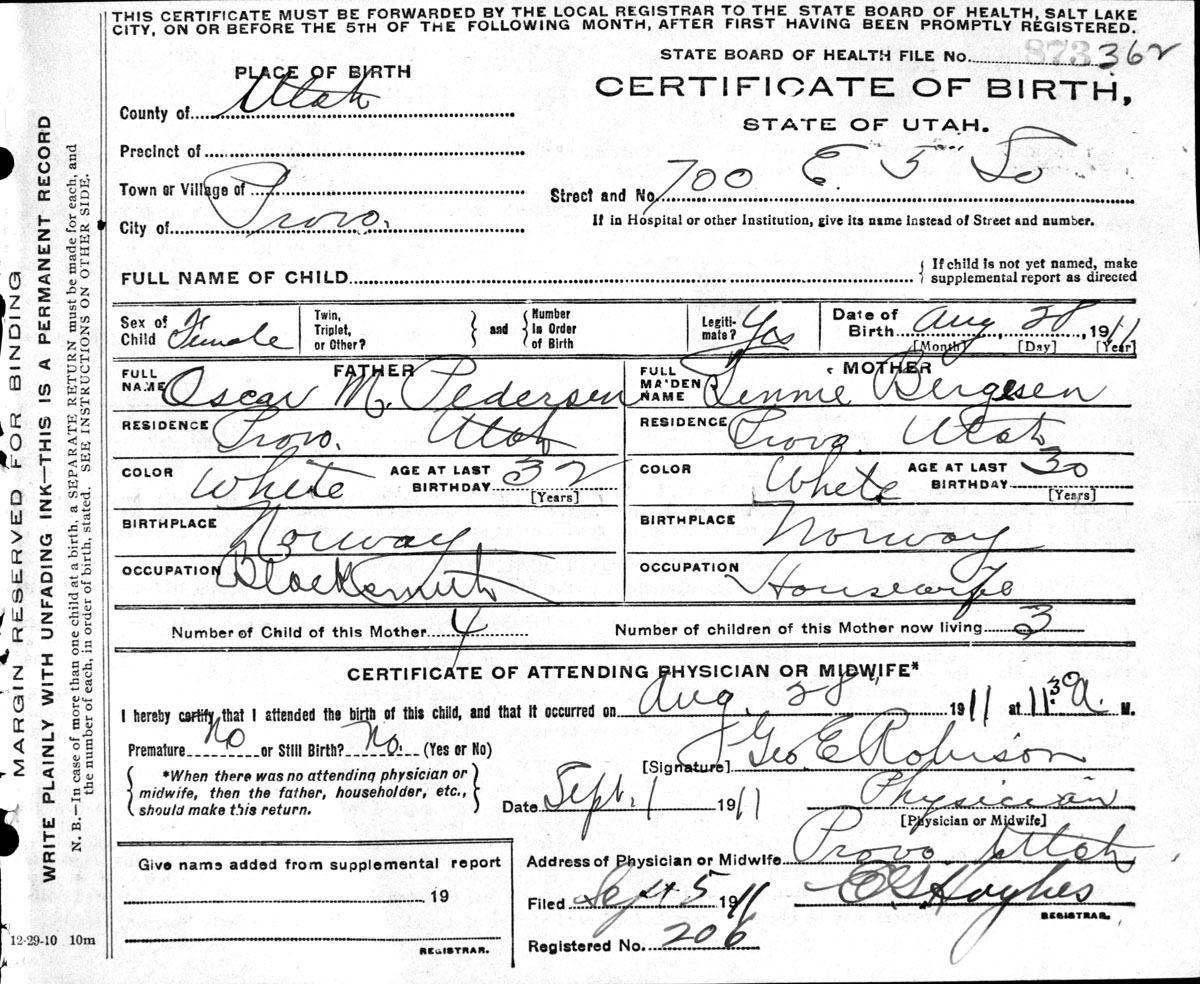 THIS CERTIFICATE MUST BE FORWARDED BY THE LOCAL REGISTRAR TO THE STATE BOARD OF HEALTH, SALT LAKE
CITY, ON OR BEFORE THE 5TH OF THE FOLLOWING MONTH, AFTER FIRST HAVING BEEN PROMPTLY REGISTERED.
STATE BOARD OF HEALTH FILE No. 873 362
PLACE OF BIRTH
CERTIFICATE OF BIRTH,
County of Utah
STATE OF UTAH.
Precinct of
Town or Village of
Street and No. 700 E 5 So
City of Provo.
If in Hospital or other Institution, give its name instead of Street and number.
FULL NAME OF CHILD { If child is not yet named, make supplemental report as directed
Sex of Child Female Twin, Triplet, or Other? } and { Number in Order of Birth Legiti-mate? Yes Date of Birth Aug 28, 1911
[Month] [Day] [Year]
FATHER
MOTHER
FULL NAME Oscar M. Pedersen
FULL MAIDEN NAME Bergesen
RESIDENCE Provo. Utah
RESIDENCE Provo Utah
COLOR White AGE AT LAST BIRTHDAY 32 [Years]
COLOR White AGE AT LAST BIRTHDAY 30 [Years]
BIRTHPLACE Norway
BIRTHPLACE Norway
OCCUPATION Blacksmith
OCCUPATION Housewife
Number of Child of this Mother 4
Number of children of this Mother now living 3
CERTIFICATE OF ATTENDING PHYSICIAN OR MIDWIFE*
I hereby certify that I attended the birth of this child, and that it occurred on Aug. 28, 1911 at 11 30 A. M.
Premature No or Still Birth? No. (Yes or No)
[Signature] Geo E Robison
{ *When there was no attending physician or midwife, then the father, householder, etc., should make this return. }
Date Sept. 1 1911
Physician
[Physician or Midwife]
Give name added from supplemental report
19
REGISTRAR.
Address of Physician or Midwife Provo Utah
Filed Sept 5 1911 Hughes
REGISTRAR.
Registered No. 206
12-29-10 10m
MARGIN RESERVED FOR BINDING
WRITE PLAINLY WITH UNFADING INK—THIS IS A PERMANENT RECORD
N. B.—In case of more than one child at a birth, a SEPARATE RETURN must be made for each, and
the number of each, in order of birth, stated. SEE INSTRUCTIONS ON OTHER SIDE.